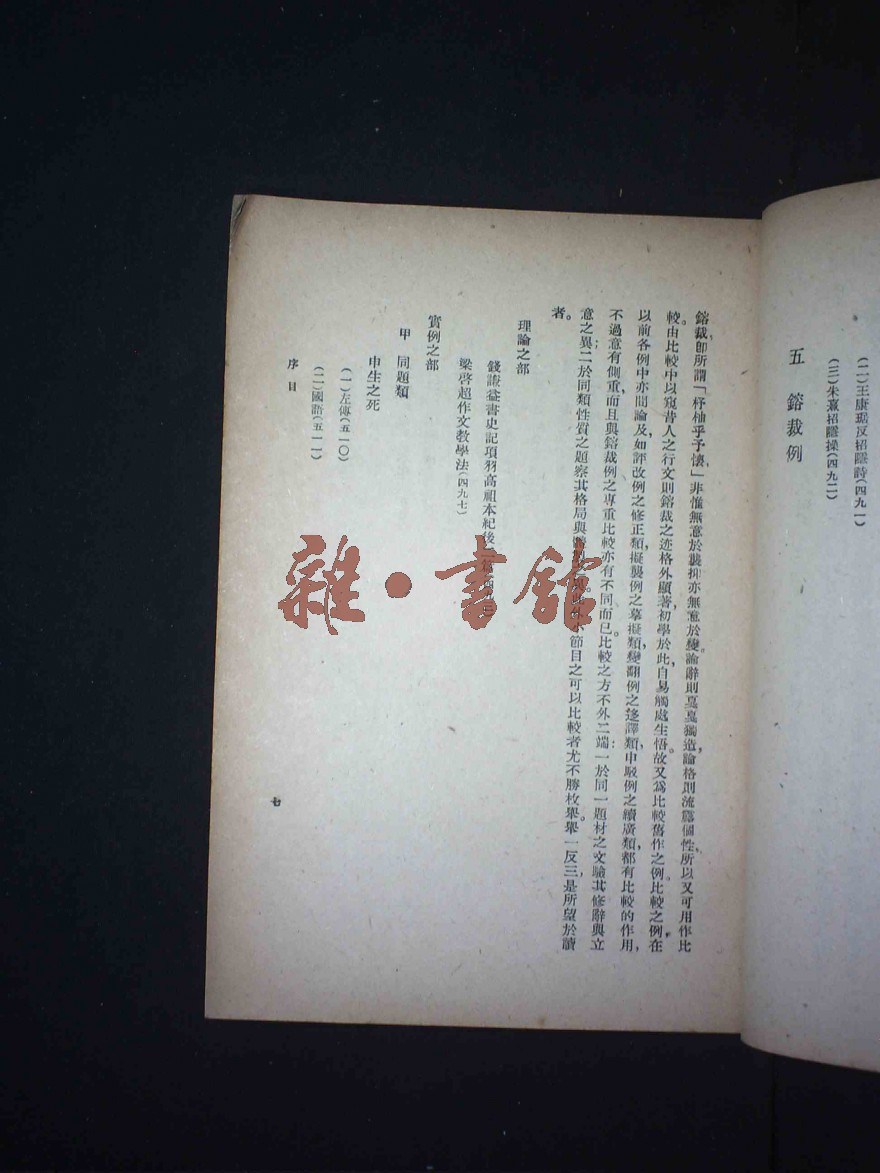 (二)王康琚反招隱詩(四九一)
(三)朱熹招隱操(四九二)
五 鎔裁例
鎔裁,即所謂「杼柚乎予懷」,非惟無意於襲抑亦無意於變。論辭則戛戛獨造,論格則流露個性,所以又可用作比
較。由比較中以窺昔人之行文,則鎔裁之迹格外顯著,初學於此,自易觸處生悟。故又爲比較舊作之例。比較之例,在
以前各例中亦間論及,如評改例之修正類,擬襲例之摹擬類,變翻例之迻譯類,申駁例之續廣類,都有比較的作用,
不過意有側重,而且與鎔裁例之專重比較亦有不同而已。比較之方不外二端:一於同一題材之文,驗其修辭與立
意之異;二於同類性質之題,察其格局與 小節目之可以比較者,尤不勝枚舉。舉一反三,是所望於讀
者。
理論之部
錢謙益書史記項羽高祖本紀後
梁啓超作文教學法(四九七)
實例之部
甲 同題類
申生之死
(一)左傳(五一〇)
(二)國語(五一一)
序目
七
雜·書館